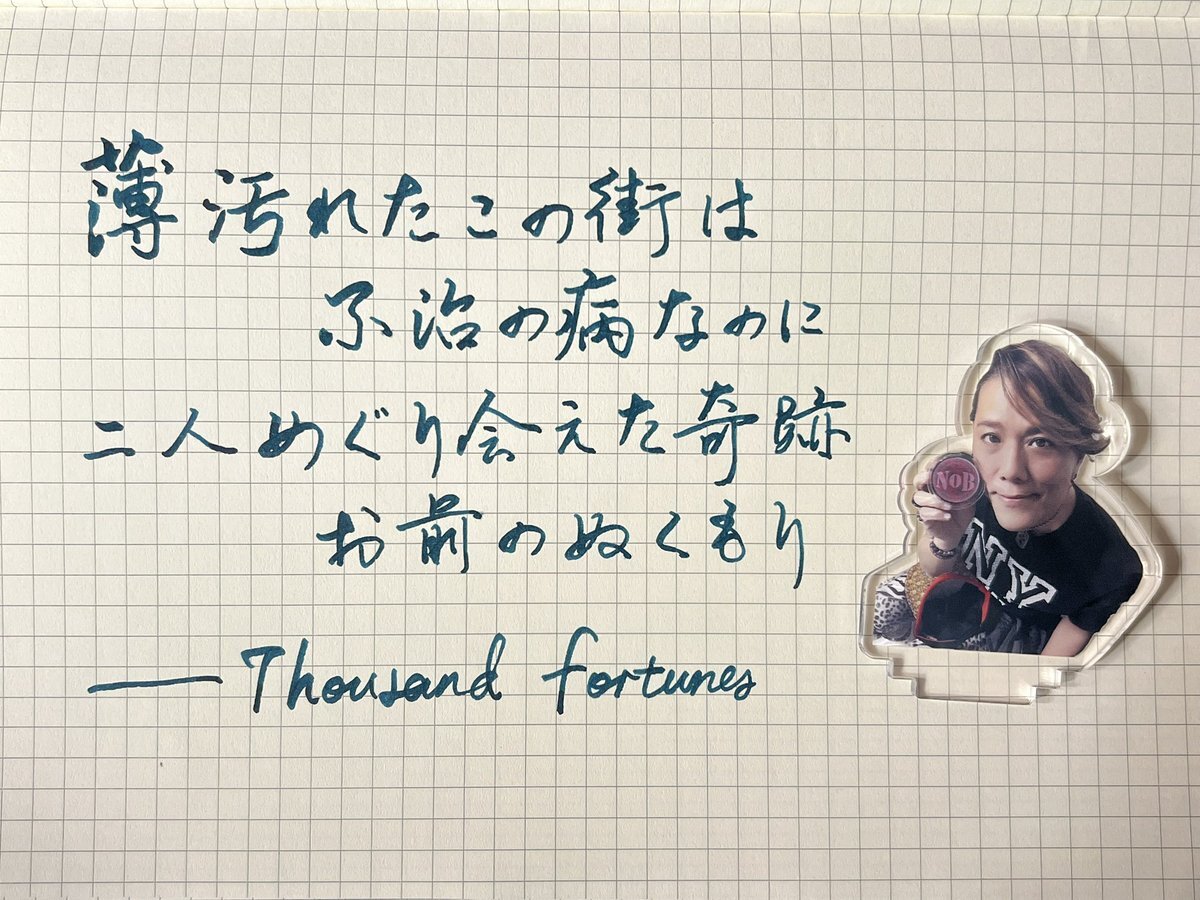 薄汚れたこの街は
不治の病なのに
二人めぐり会えた奇跡
お前のぬくもり
— Thousand fortunes
NoB
NY